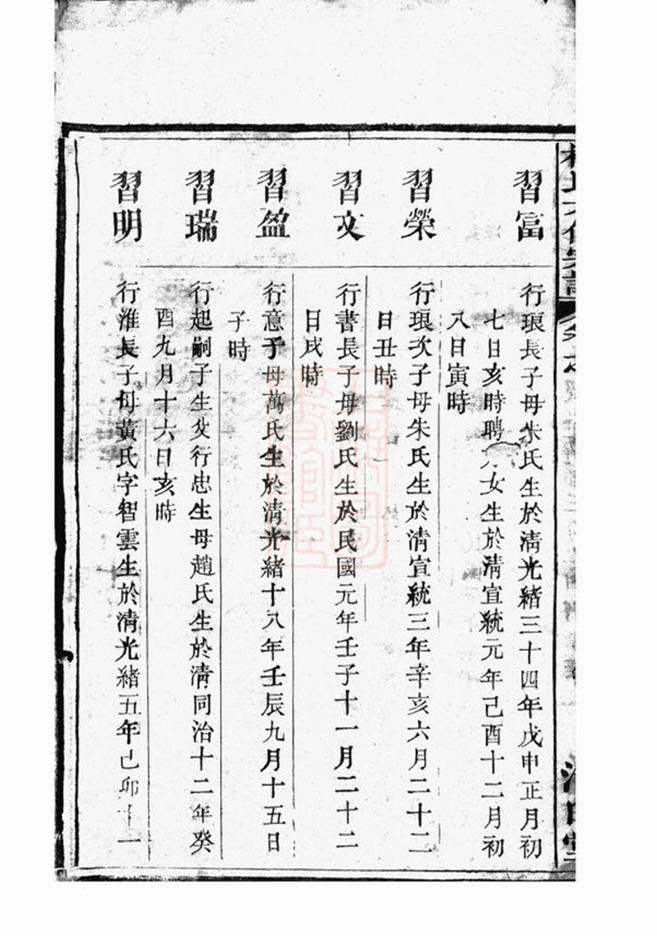 習富
行琅長子母朱氏生於清光緒三十四年戊申正月初
七日亥時聘 女生於清宣統元年己酉十二月初
八日寅時
習榮
行琅次子母朱氏生於清宣統三年辛亥六月二十二
日丑時
習文
行書長子母劉氏生於民國元年壬子十一月二十二
日戌時
習盈
行意子母萬氏生於清光緒十八年壬辰九月十五日
子時
習瑞
行起嗣子生父行忠生母趙氏生於清同治十二年癸
酉九月十六日亥時
習明
行淮長子母黃氏字智雲生於清光緒五年己卯十一